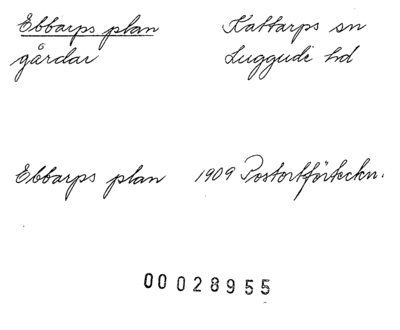 Ebbarps plan Kattarps sn
gårdar Luggude hd
Ebbarps plan 1909 Postortförteckn.
00 028955